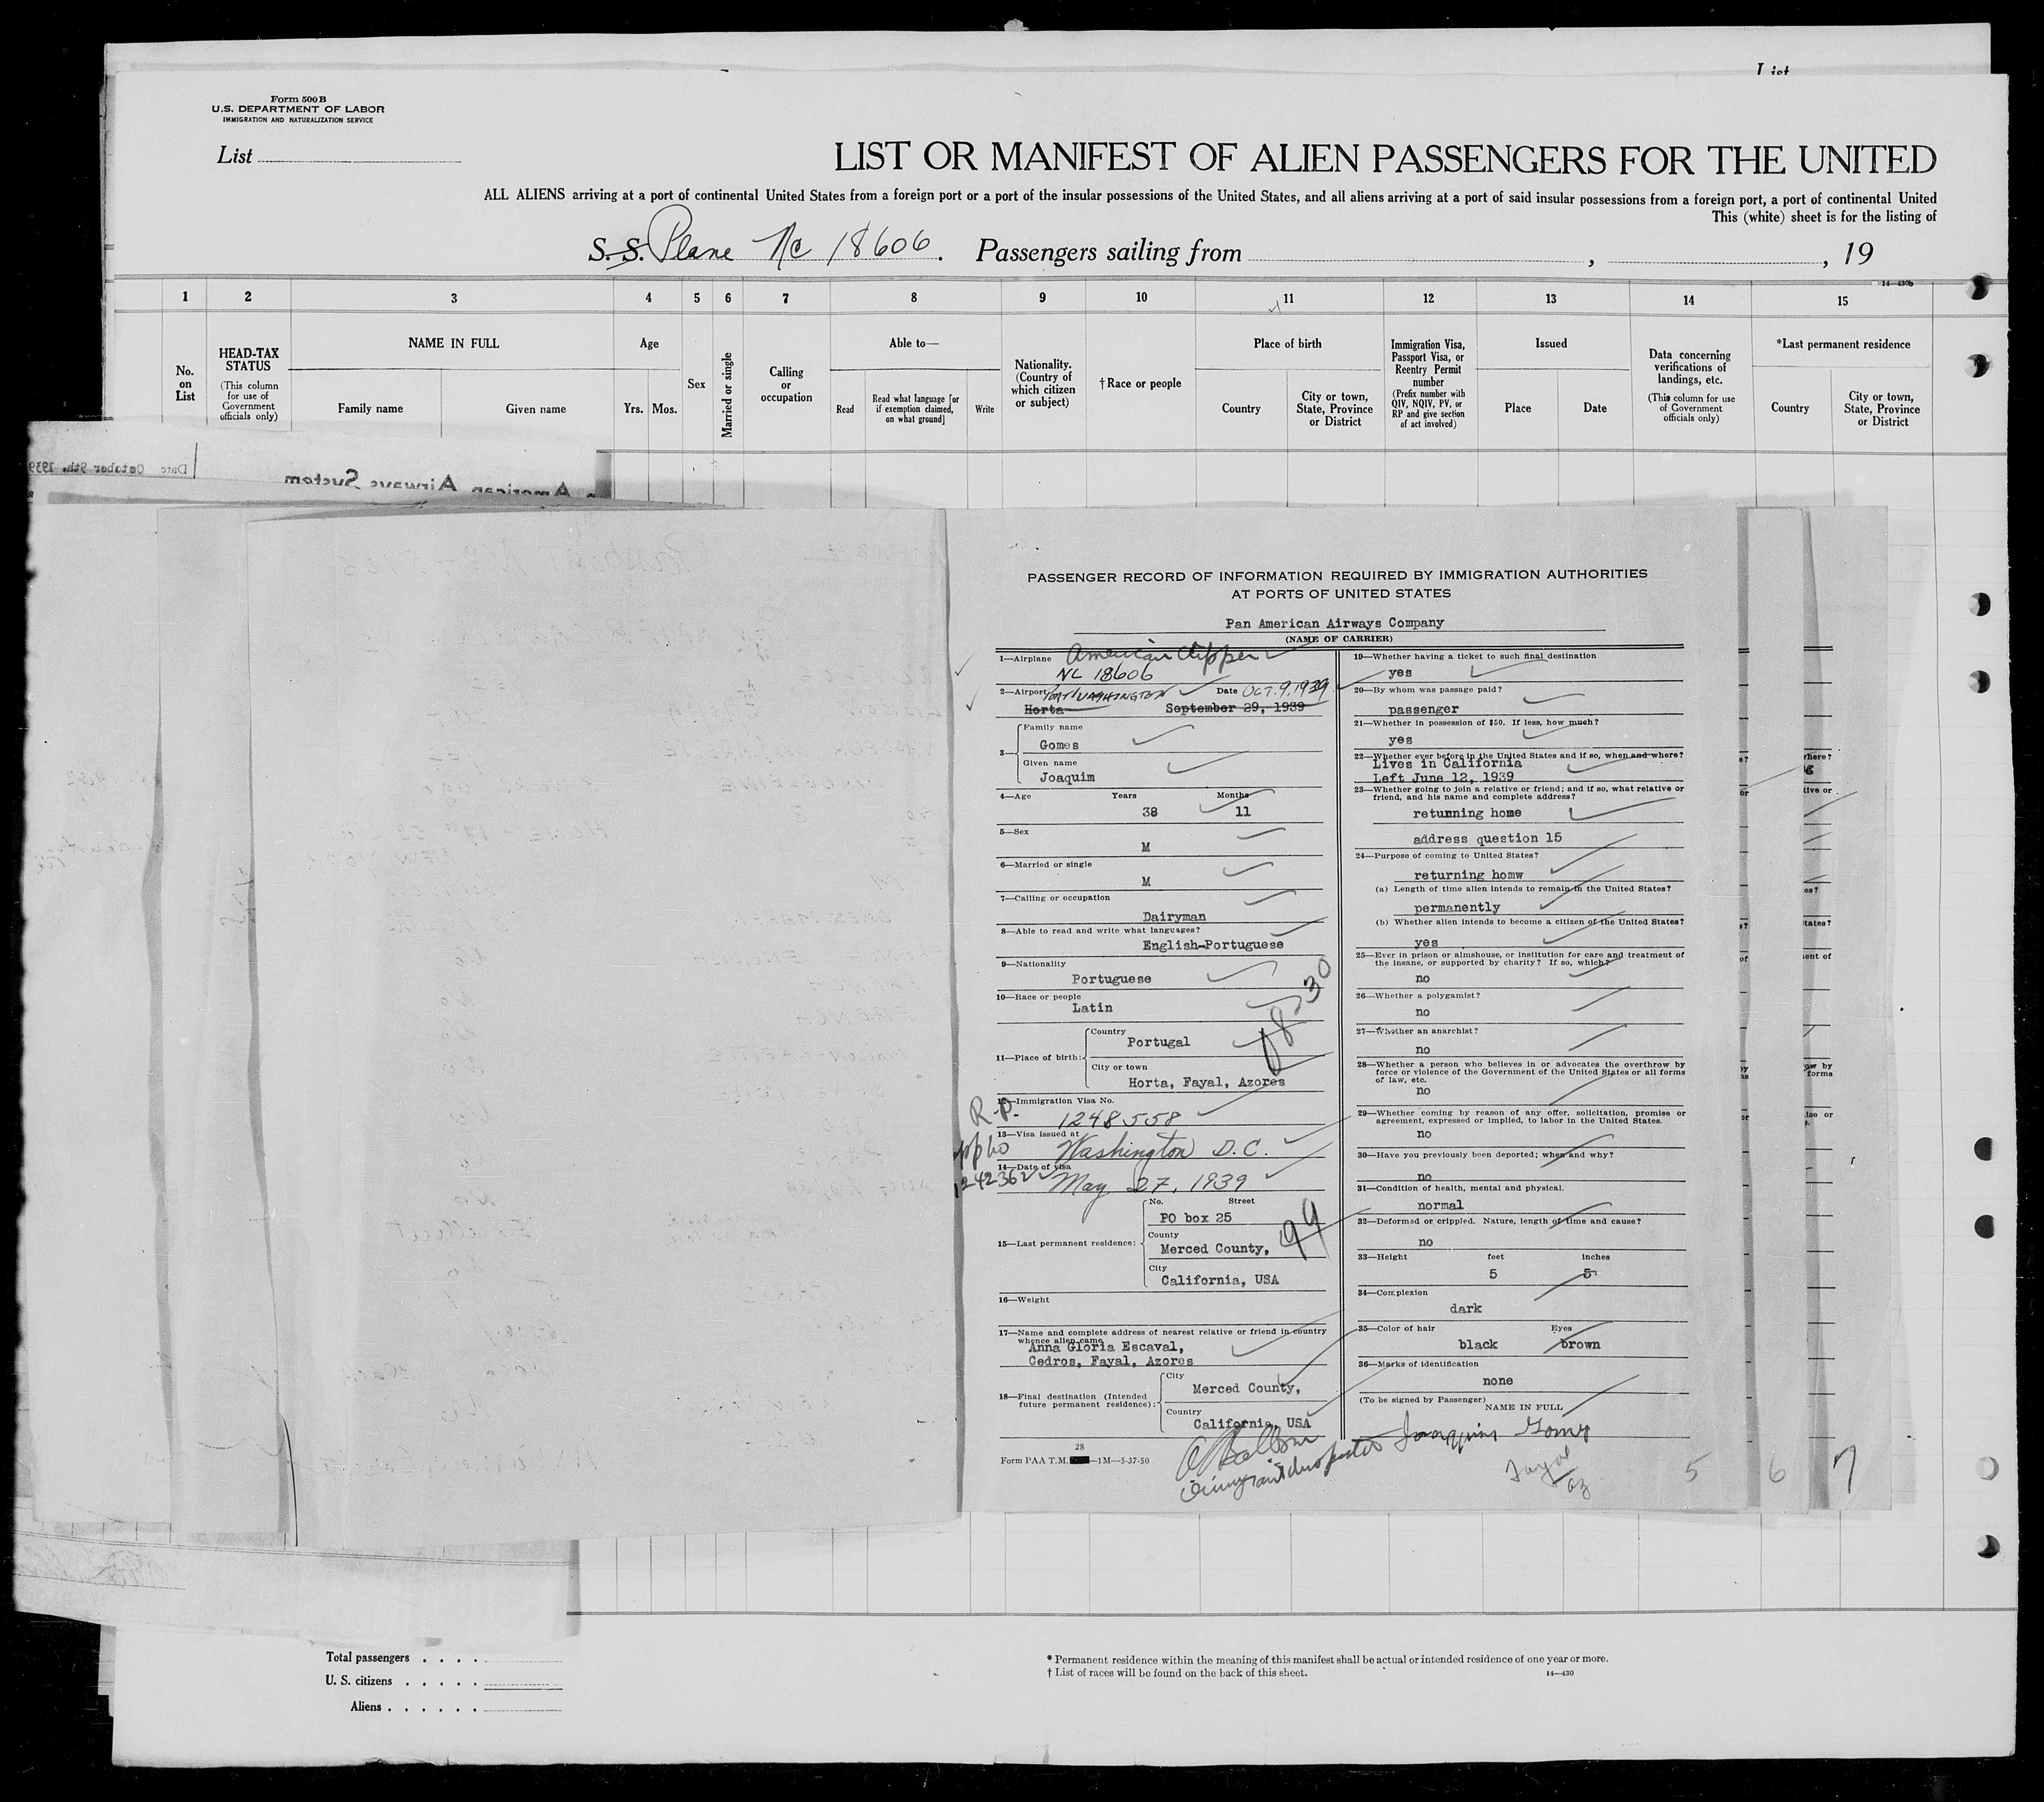 List
Form 500 B
U.S. DEPARTMENT OF LABOR
IMMIGRATION AND NATURALIZATION SERVICE
List
LIST OR MANIFEST OF ALIEN PASSENGERS FOR THE UNITED
ALL ALIENS arriving at a port of continental United States from a foreign port or a port of the insular possessions of the United States, and all aliens arriving at a port of said insular possessions from a foreign port, a port of continental United
This (white) sheet is for the listing of
S. S. Plane Nc 18606. Passengers sailing from , , 19
14—430b
1 2 3 4 5 6 7 8 9 10 11 12 13 14 15
No. on List
HEAD-TAX STATUS
(This column for use of Government officials only)
NAME IN FULL
Family name Given name
Age
Yrs. Mos.
Sex
Married or single
Calling or occupation
Able to—
Read
Read what language [or if exemption claimed, on what ground]
Write
Nationality. (Country of which citizen or subject)
†Race or people
Place of birth
Country
City or town, State, Province or District
Immigration Visa, Passport Visa, or Reentry Permit number
(Prefix number with QIV, NQIV, PV, or RP and give section of act involved)
Issued
Place Date
Data concerning verifications of landings, etc.
(This column for use of Government officials only)
*Last permanent residence
Country
City or town, State, Province or District
Date October 9th, 1939
American Airways System
PASSENGER RECORD OF INFORMATION REQUIRED BY IMMIGRATION AUTHORITIES
AT PORTS OF UNITED STATES
Pan American Airways Company
(NAME OF CARRIER)
1—Airplane American Clipper
NC 18606
2—Airport PORT WASHINGTON Date OCT. 9, 1939
Horta September 29, 1939
3—
Family name
Gomes
Given name
Joaquim
4—Age Years Months
38 11
5—Sex
M
6—Married or single
M
7—Calling or occupation
Dairyman
8—Able to read and write what languages?
English-Portuguese
9—Nationality
Portuguese
10—Race or people
Latin
11—Place of birth:
Country
Portugal
City or town
Horta, Fayal, Azores
30
R.P.
12—Immigration Visa No.
1248558
13—Visa issued at
Washington D.C.
14—Date of visa
1242362
May 27, 1939
15—Last permanent residence:
No. Street
PO box 25
County
Merced County,
City
California, USA
99
16—Weight
17—Name and complete address of nearest relative or friend in country
whence alien came
Anna Gloria Escaval,
Cedros, Fayal, Azores
18—Final destination (Intended
future permanent residence):
City
Merced County,
Country
California, USA
28
Form PAA T.M. —1M—5-37-50
19—Whether having a ticket to such final destination
yes
20—By whom was passage paid?
passenger
21—Whether in possession of $50. If less, how much?
yes
22—Whether ever before in the United States and if so, when and where?
Lives in California
Left June 12, 1939
23—Whether going to join a relative or friend; and if so, what relative or
friend, and his name and complete address?
retunning home
address question 15
24—Purpose of coming to United States?
returning homw
(a) Length of time alien intends to remain in the United States?
permanently
(b) Whether alien intends to become a citizen of the United States?
yes
25—Ever in prison or almshouse, or institution for care and treatment of
the insane, or supported by charity? If so, which?
no
26—Whether a polygamist?
no
27—Whether an anarchist?
no
28—Whether a person who believes in or advocates the overthrow by
force or violence of the Government of the United States or all forms
of law, etc.
no
29—Whether coming by reason of any offer, solicitation, promise or
agreement, expressed or implied, to labor in the United States.
no
30—Have you previously been deported; when and why?
no
31—Condition of health, mental and physical.
normal
32—Deformed or crippled. Nature, length of time and cause?
no
33—Height feet inches
5 5
34—Complexion
dark
35—Color of hair Eyes
black brown
36—Marks of identification
none
(To be signed by Passenger)
NAME IN FULL
Joaquim Gomes
Fayal
az
5 6 7
Total passengers
U. S. citizens
Aliens
* Permanent residence within the meaning of this manifest shall be actual or intended residence of one year or more.
† List of races will be found on the back of this sheet. 14—430